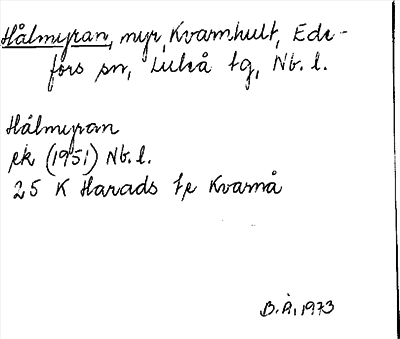 Hålmyran, myr, Kvarnhult, Ede-
fors sn, Luleå tg, Nb. l.
Hålmyran
ek (1951) Nb. l.
25 K Harads te Kvarnå
B. Å. 1973